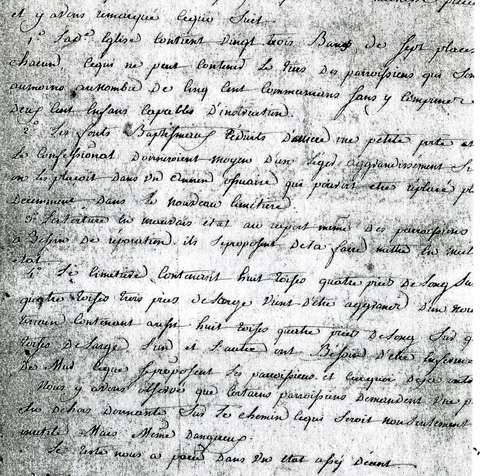 et y avons remarqué cequi suit
1° Lad.e Eglise contient vingt trois Bancs de sept places
chacun cequi ne peut contenir le tiers des paroissiens qui son
aumoins aunombre de cinq cent communians sans y comprendre
deux cent Enfans capables d'instruction.
2° Les fonts Baptismeaux Reduits derriere une petite porte et
Le Confessionat Donneroient moyen d'un leger aggrandissement si
on les placoit dans un Ancien ossuaire qui pouroit etre replacé pl
Decemment dans le nouveau cimetiere
3° La toiture en mauvais état au raport même des paroissiens
a Besoin de reparation. ils seproposent dela faire mettre en meil
etat.
4° Le cimetiere contenait huit toises quatre pieds de Long Sur
quatre toises trois pieds de large vient d'être aggrandi d'un nou
terrain contenant aussi huit toises quatre pieds de Long Sur q
toises de Large L'un et L'autre ont Besoin d'etre Enferme
De Mur ceque seproposent les paroissiens et
Nous y avons observé que certains paroissiens demandent une p
du dehors donnante sur le chemin cequi seroit nonseulement
inutile Mais Même Dangereux.
Le reste nous a paru dans un état assés décent.